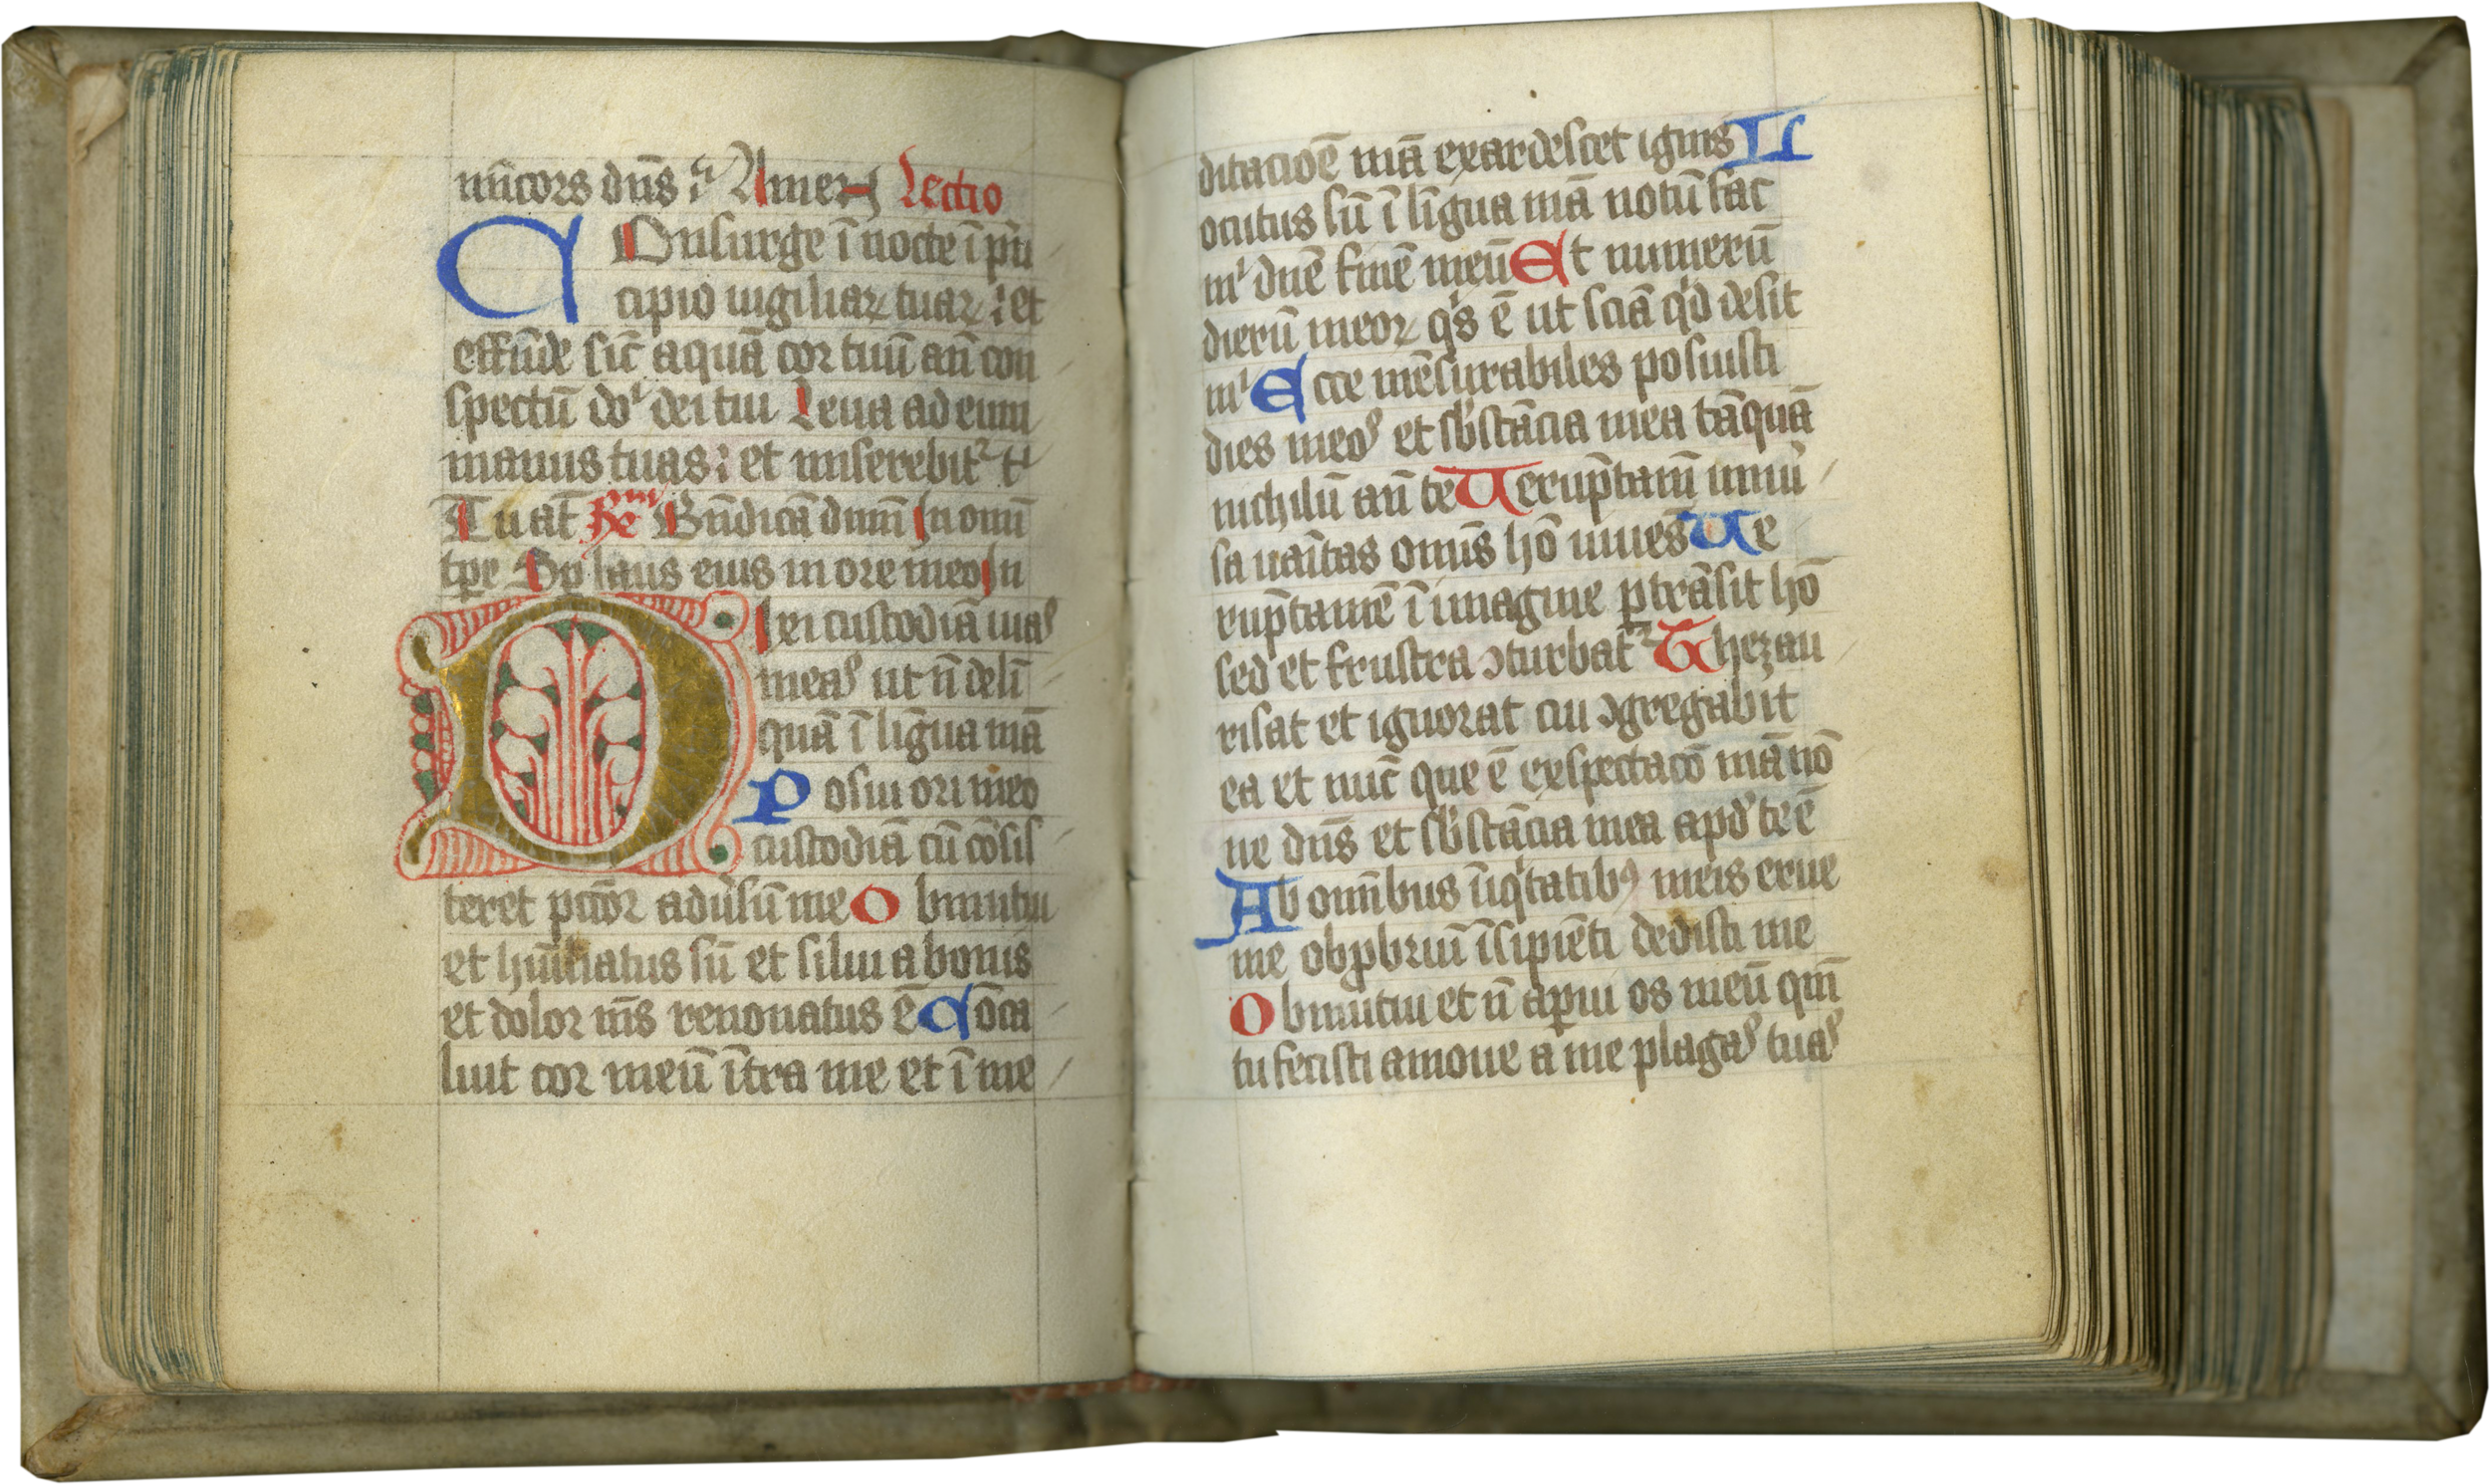 mīcors dn̄s ⁊ Amen Lectio
COnsurge ī nocte ī pri
cipio uigiliaꝝ tuaꝝ : et
effūde sic̄ aquā cor tuū an̄ con
spectū do͛ dei tui Leua ad eum
manus tuas : et miserebit᷑ tͥ
Tuat̄ Bn̄dicā dnm̄ In omī
tꝑe Sꝑ laus eius in ore meo In
Dixi custodiā uias
meas ut n̄ deli
quā ī līgua mā
Posui ori meo
custodiā cū cōsis
teret pctōr adūsū me Obmutui
et hūiliatus sū et silui a bonis
et dolor m̄s renouatus ē Cōca
luit cor meū ītra me et ī me
ditacioē mā exardescet ignis L
ocutus sū ī līgua mā notū fac
mͥ dn̄e finē meū Et numerū
dierū meoꝝ qͥs ē ut sciā qͥd desit
mͥ Ecce mēsurabiles posuisti
dies meos et sb̄stācia mea tāquā
nichilū an̄ te Uerūptam̄ uniū
sa uaītas omīs hō uiues Ue
rūptamē ī imagine ꝑtrāsit hō
sed et frustra ꝯturbat᷑ Thezau
risat et ignorat cui ꝯgregabit
ea et nūc que ē exspectacō mā nō
ne dn̄s et sb̄stācia mea apd̄ te ē
Ab omībus īiqͥtatibꝫ meis erue
me obꝓbriū īsipiēti dedisti me
Obmutui et n̄ aꝑui os meū qm̄
tu fecisti amoue a me plagas tuas